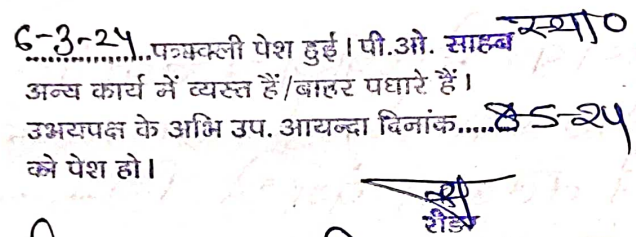 6-3-24 ..पत्रावली पेश हुई। पी.ओ. साहब स्था०
अन्य कार्य में व्यस्त हैं/बाहर पधारे हैं।
उभयपक्ष के अभि उप. आयन्दा दिनांक.....8-5-24
को पेश हो।
रीडर